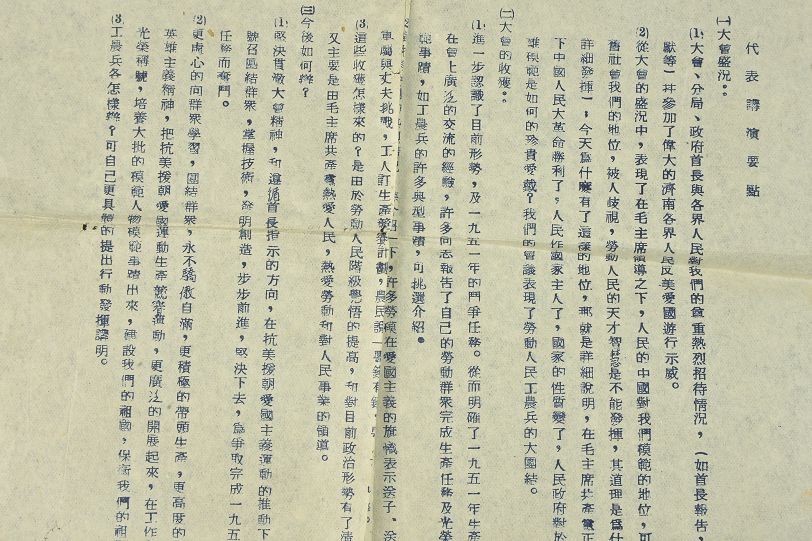 代表講演要點
㈠大會盛况：
⑴大會、分局、政府首長與各界人民對我們的尊重熱烈招待情况，（如首長報告，
獻等）幷參加了偉大的濟南各界人民反美愛國游行示威。
⑵從大會的盛况中，表現了在毛主席領導之下，人民的中國對我們模範的地位，可
舊社會我們的地位，被人歧視，勞動人民的天才智慧是不能發揮，其道理是爲什
詳細發揮），今天爲什麽有了這樣的地位，那就是詳細說明，在毛主席共產黨正
下中國人民大革命勝利了，人民作國家主人了，國家的性質變了，人民政府對於
雄模範是如何的珍貴愛戴？我們的會議表現了勞動人民工農兵的大團結。
㈡大會的收獲：
⑴進一步認識了目前形勢，及一九五一年的鬥爭任務。從而明確了一九五一年生產
在會上廣泛的交流的經驗，許多同志報告了自己的勞動群眾完成生產任務及光榮
範事蹟，如工農兵的許多典型事蹟，可挑選介紹。
下，許多勞模在愛國主義的旗幟表示送子、送
軍屬與丈夫挑戰，工人訂生產競賽計劃，農民說
⑶這些收獲怎樣來的？是由於勞動人民階級覺悟的提高，和對目前政治形勢有了清
又主要是由毛主席共產黨熱愛人民，熱愛勞動和對人民事業的領導。
㈢今後如何辦？
⑴堅決貫徹大會精神，和遵循首長指示的方向，在抗美援朝愛國主義運動的推動下
號召團結群眾，掌握技術，發明創造，步步前進，堅決下去，爲爭取完成一九五
任務而奮鬥。
⑵更虛心的向群眾學習，團結群眾，永不驕傲自滿，更積極的帶頭生產，更高度的
英雄主義精神，把抗美援朝愛國運動生產競賽運動，更廣泛的開展起來，在工作
光榮稱號，培養大批的模範人物模範事蹟出來，建設我們的祖國，保衛我們的祖
⑶工農兵各怎樣辦？可自己更具體的提出行動發揮講明。